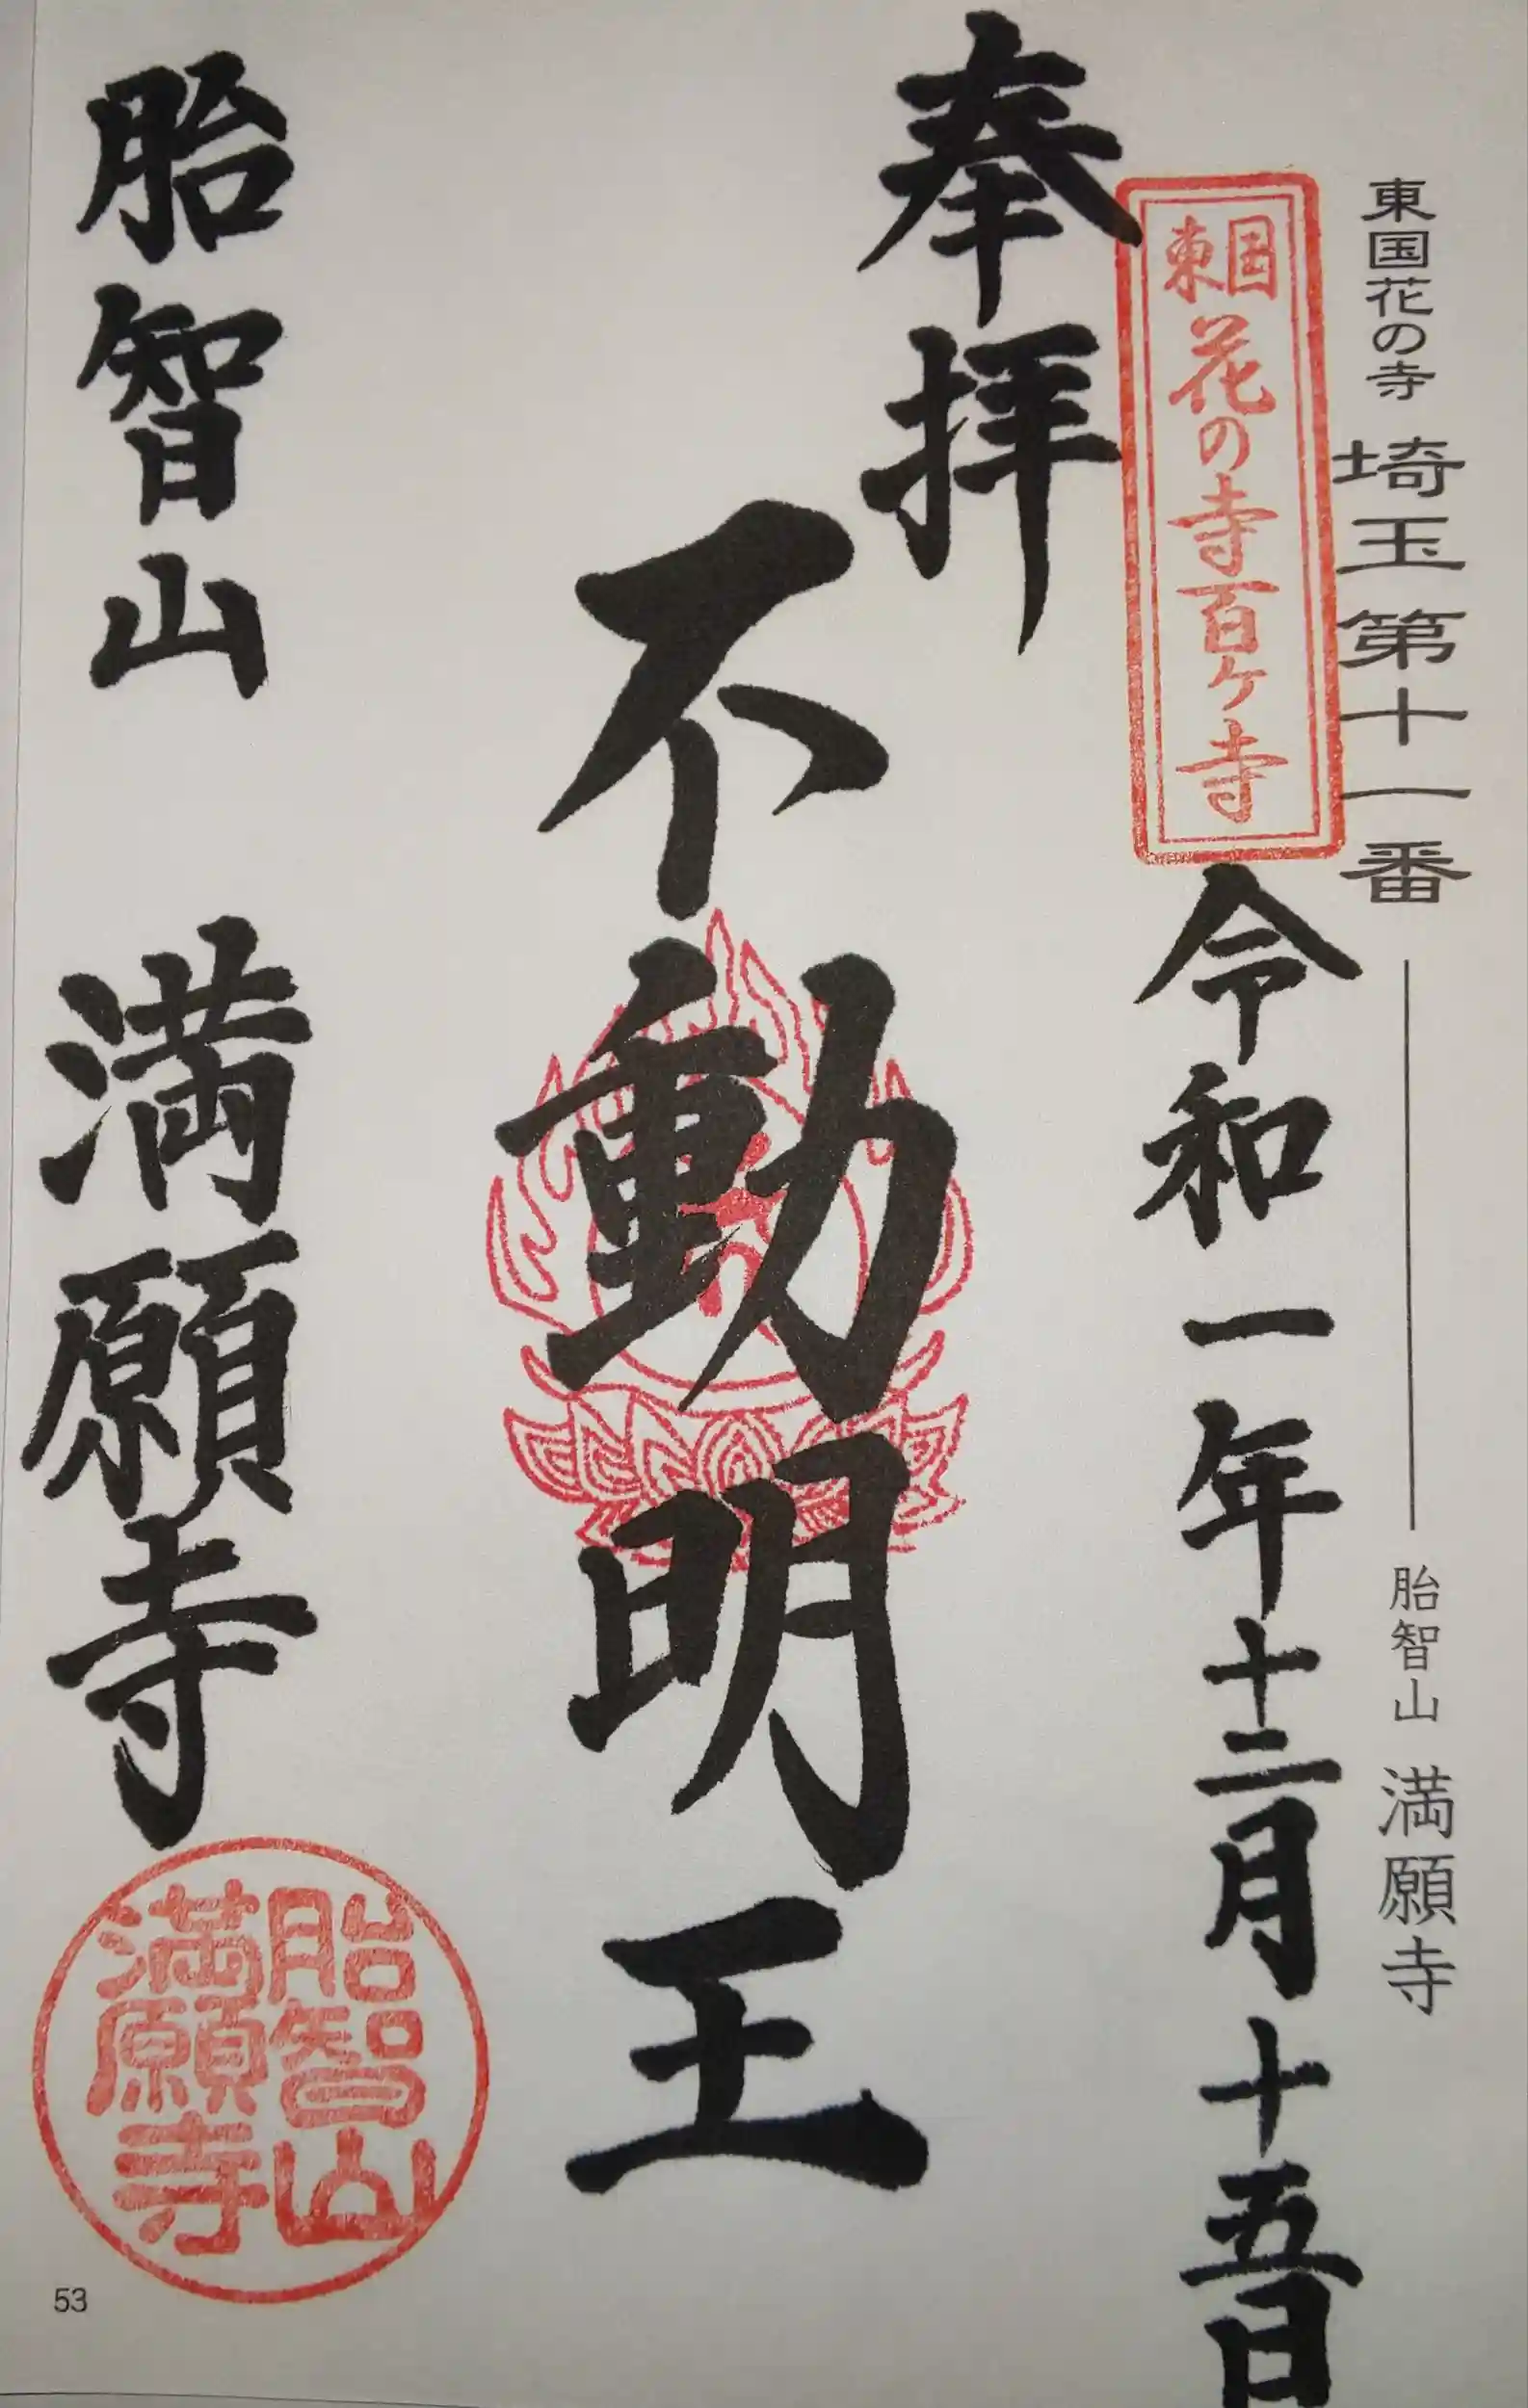 東国花の寺 埼玉第十一番 胎智山 満願寺
東国花の寺百ヶ寺
奉拝
令和一年十二月十五日
不動明王
胎智山 満願寺
胎智山
満願寺
53